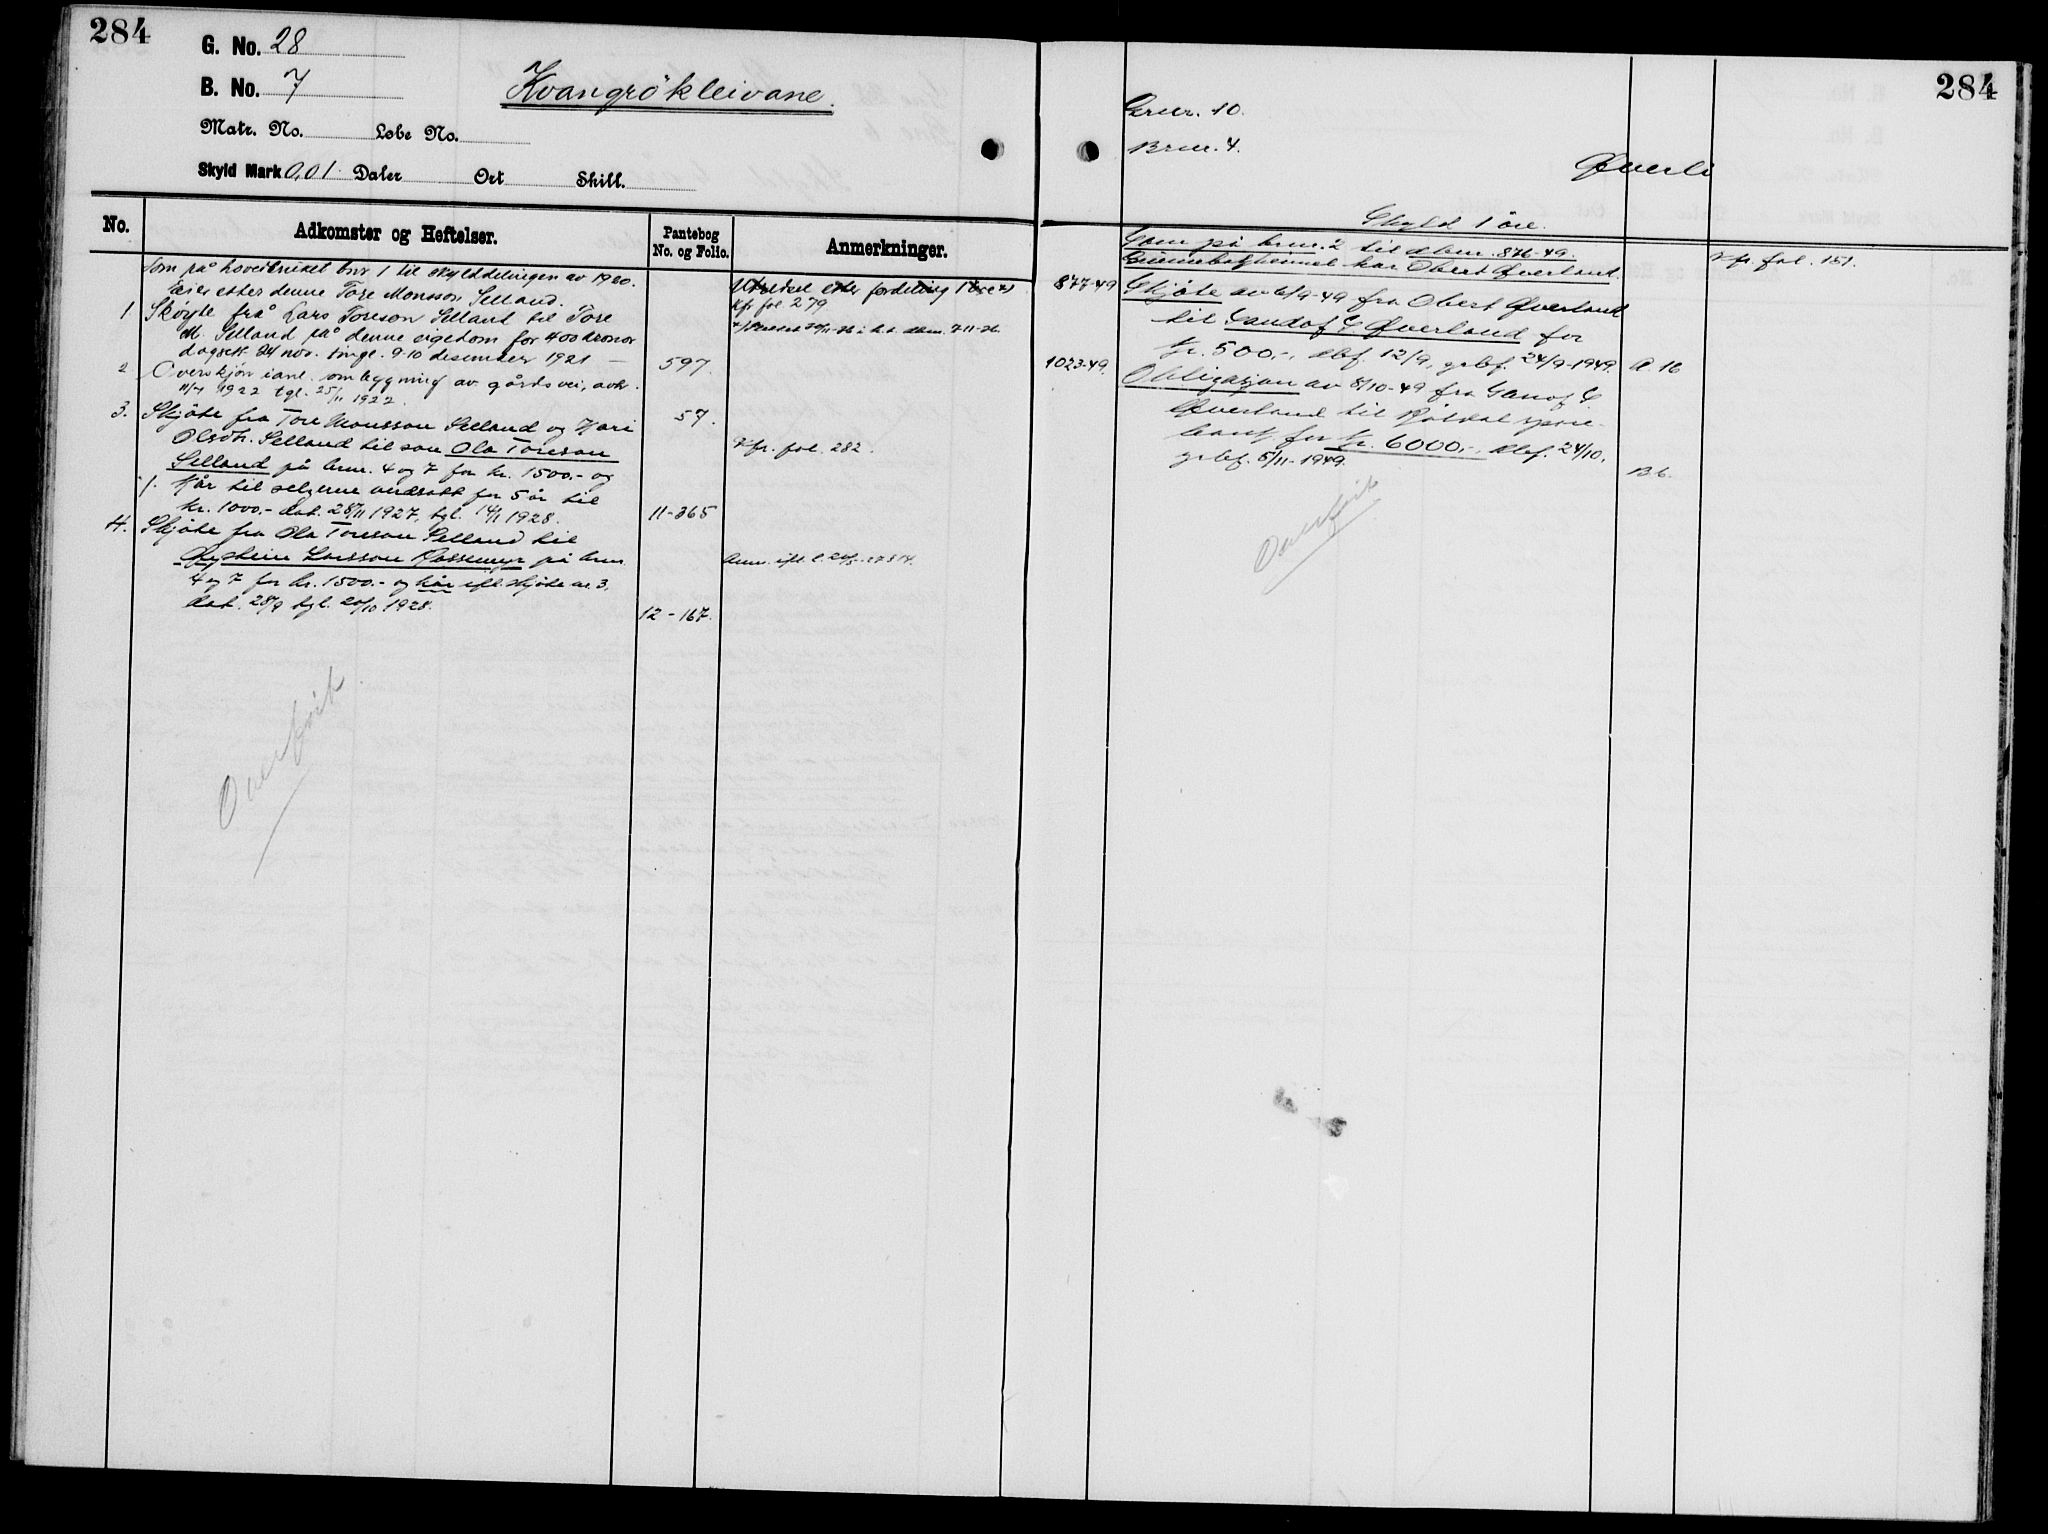 284
G. No. 28
B. No. 7
Kvangrökleivane.
Matr. No. Løbe No.
Skyld Mark 0,01 Daler Ort Skill.
No. Adkomster og Heftelser. Pantebog No. og Folio. Anmerkninger.
Som på hovedbruket bnr 1 til skylddelingen av 1920.
Eier etter denne Tore Monsson Selland.
efter fordeling 1 öre x)
Kfr fol 279
1 Skøyte frå Lars Toreson Selland til Tore
M. Selland på denne eigedom for 400 kronor
dagsett 24 nov. tingl. 9-10 desember 1921 — 597.
2 Overskjön i anl. omlegging av gårdsvei, avh.
11/7 1922 tgl. 25/11 1922. 57.
3. Skjöte fra Tore Monsson Selland og Kari
Olsdtr. Selland til son Ola Toreson
Selland på bnr. 4 og 7 for kr. 1500,- og Kfr. fol. 282.
1. Kår til selgerne verdsatt for 5 år til
kr. 1000.- dat. 28/11 1927, tgl. 14/1 1928. 11-365
4. Skjöte fra Ola Toreson Selland til
Öystein Larsson Rossemyr på bnr.
4 og 7 for kr. 1500.- og kår ifl. skjöte nr 3,
dat. 28/9 tgl. 20/10 1928. 12-167.
Overfört
284
Gnr. 10.
Bnr. 4.
Øverli
Skyld 1 öre.
Som på bnr. 2 til dbnr. 876-49. Kfr. fol. 151.
Grunnbokheimel har Obert Øverland.
877-49 Skjöte av 6/9-49 fra Obert Øverland
til Gandof G Øverland for
kr. 500,-, dbf. 12/9, grbf. 24/9-1949. A 16
1023-49. Obligasjon av 8/10-49 fra Ganof G
Øverland til Röldal spare-
bank for kr. 6000,-, dbf. 24/10,
grbf. 5/11-1949. B 6.
Overfört